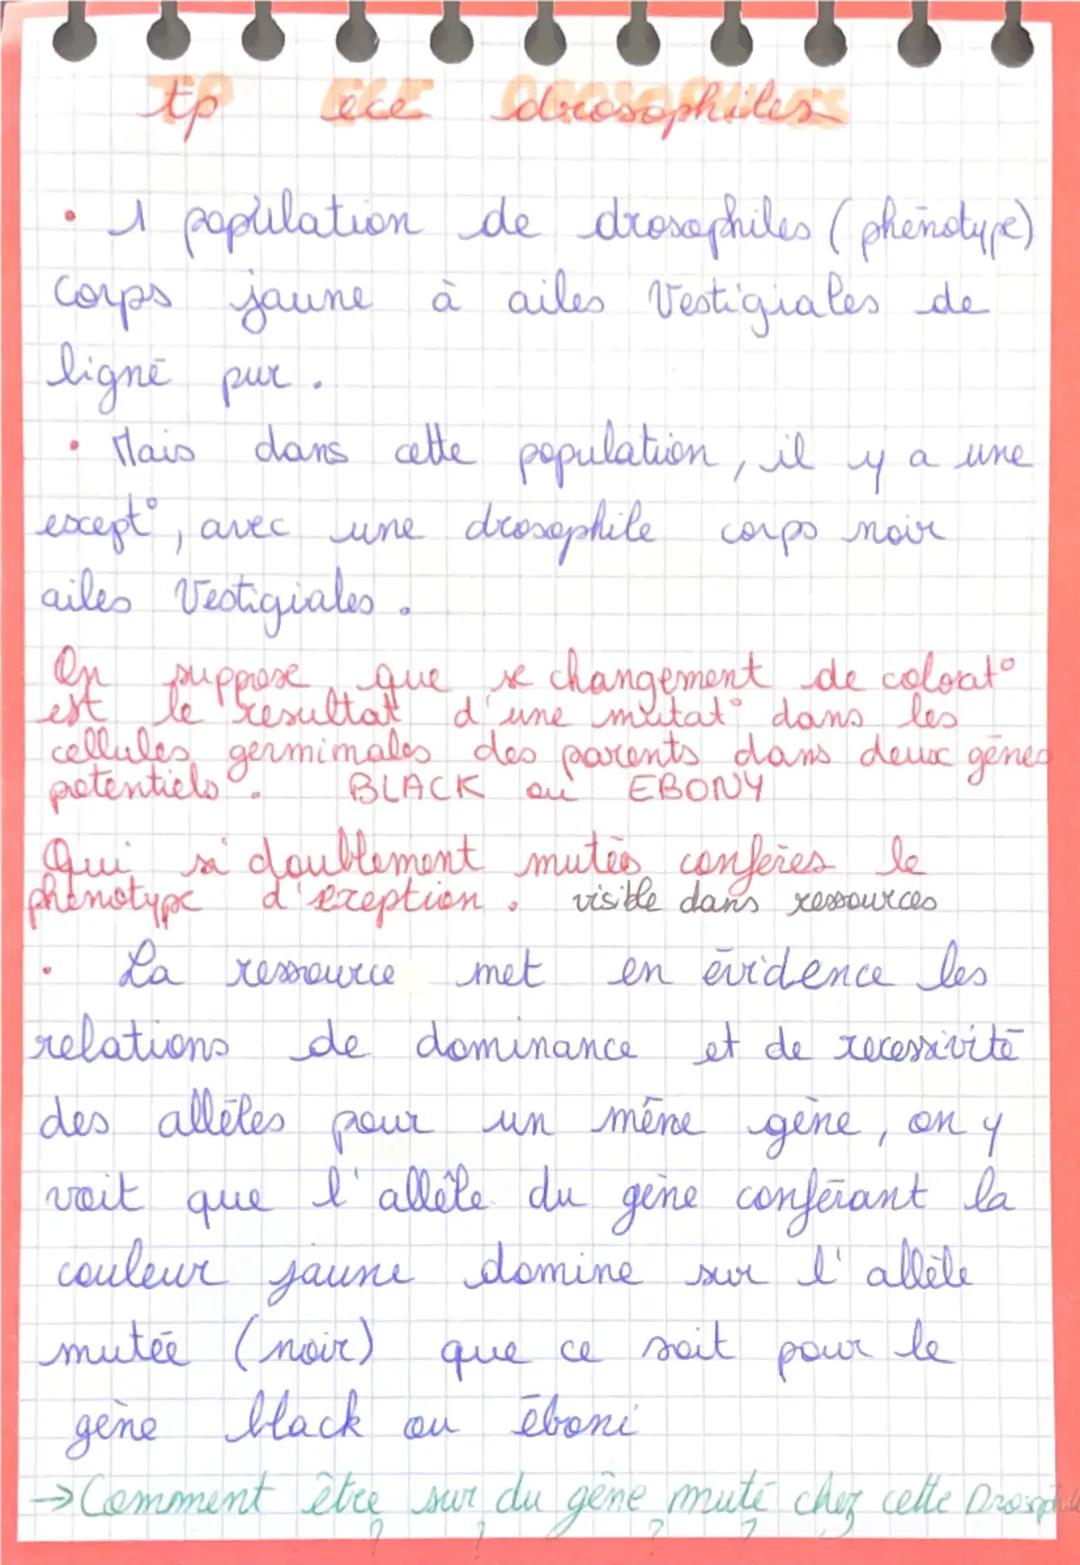 tp ece drosophiles
• 1 population de drosophiles (phénotype)
corps jaune à ailes Vestigiales de
ligné pur.
• Mais dans cette population, il y a une
except°, avec une drosophile corps noir
ailes Vestigiales.
On suppose que se changement de colorat°
est le résultat d'une mutat° dans les
cellules germimales des parents dans deux gènes
potentiels. BLACK ou EBONY
Qui si doublement mutés conferes le
phénotype d'exeption. visible dans ressources
• La ressource met en évidence les
relations de dominance et de recessivité
des allèles pour un même gène, on y
voit que l'allèle du gène conférant la
couleur jaune domine sur l'allèle
mutée (noir) que ce soit pour le
gène black ou éboni
→ Comment être sur du gêne muté chez cette Drosophile
? ? ? ?